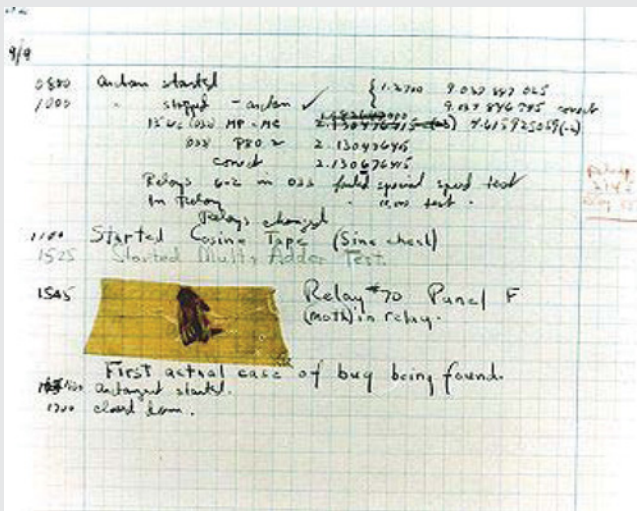 9/9
0800 antan started
1000 " stopped - antan ✓ { 1.2700 9.037 847 025
9.037 846 795 correct
13"uc (032) MP - MC 2.130476415 (-3) 4.615925059(-2)
033 PRO 2 2.130476415
correct 2.130676415
Relays 6-2 in 033 failed special speed test
in relay " test .
Relays changed
1100 Started Cosine Tape (Sine check)
1525 Started Multi Adder Test.
1545 Relay #70 Panel F
(moth) in relay.
First actual case of bug being found.
antangent started.
1700 closed down.